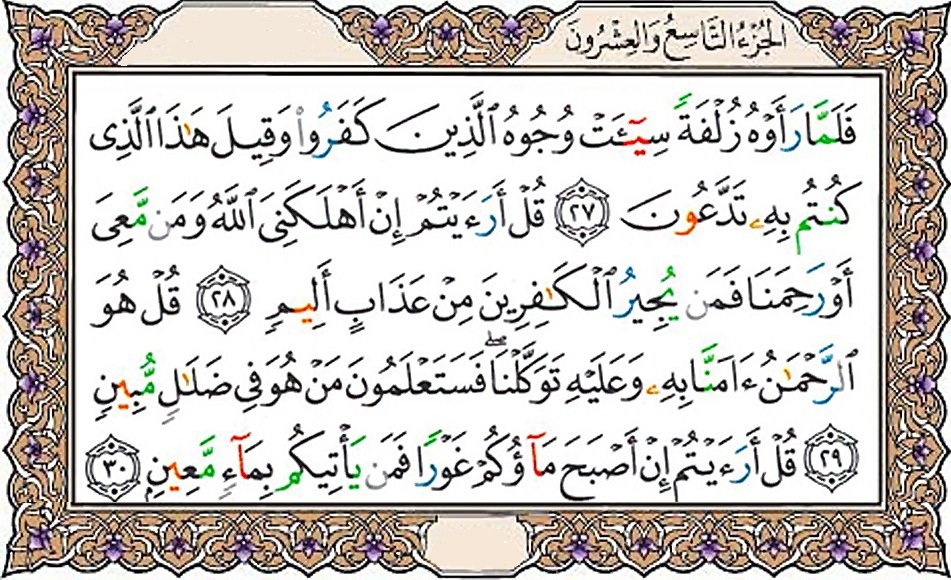 الجُزْءُ التَّاسِعُ وَالعِشْرُونَ
فَلَمَّا رَأَوْهُ زُلْفَةً سِيٓـَٔتْ وُجُوهُ ٱلَّذِينَ كَفَرُوا۟ وَقِيلَ هَٰذَا ٱلَّذِى
كُنتُم بِهِۦ تَدَّعُونَ ٢٧ قُلْ أَرَءَيْتُمْ إِنْ أَهْلَكَنِىَ ٱللَّهُ وَمَن مَّعِىَ
أَوْ رَحِمَنَا فَمَن يُجِيرُ ٱلْكَٰفِرِينَ مِنْ عَذَابٍ أَلِيمٍ ٢٨ قُلْ هُوَ
ٱلرَّحْمَٰنُ ءَامَنَّا بِهِۦ وَعَلَيْهِ تَوَكَّلْنَا ۖ فَسَتَعْلَمُونَ مَنْ هُوَ فِى ضَلَٰلٍ مُّبِينٍ
٢٩ قُلْ أَرَءَيْتُمْ إِنْ أَصْبَحَ مَآؤُكُمْ غَوْرًا فَمَن يَأْتِيكُم بِمَآءٍ مَّعِينٍۭ ٣٠